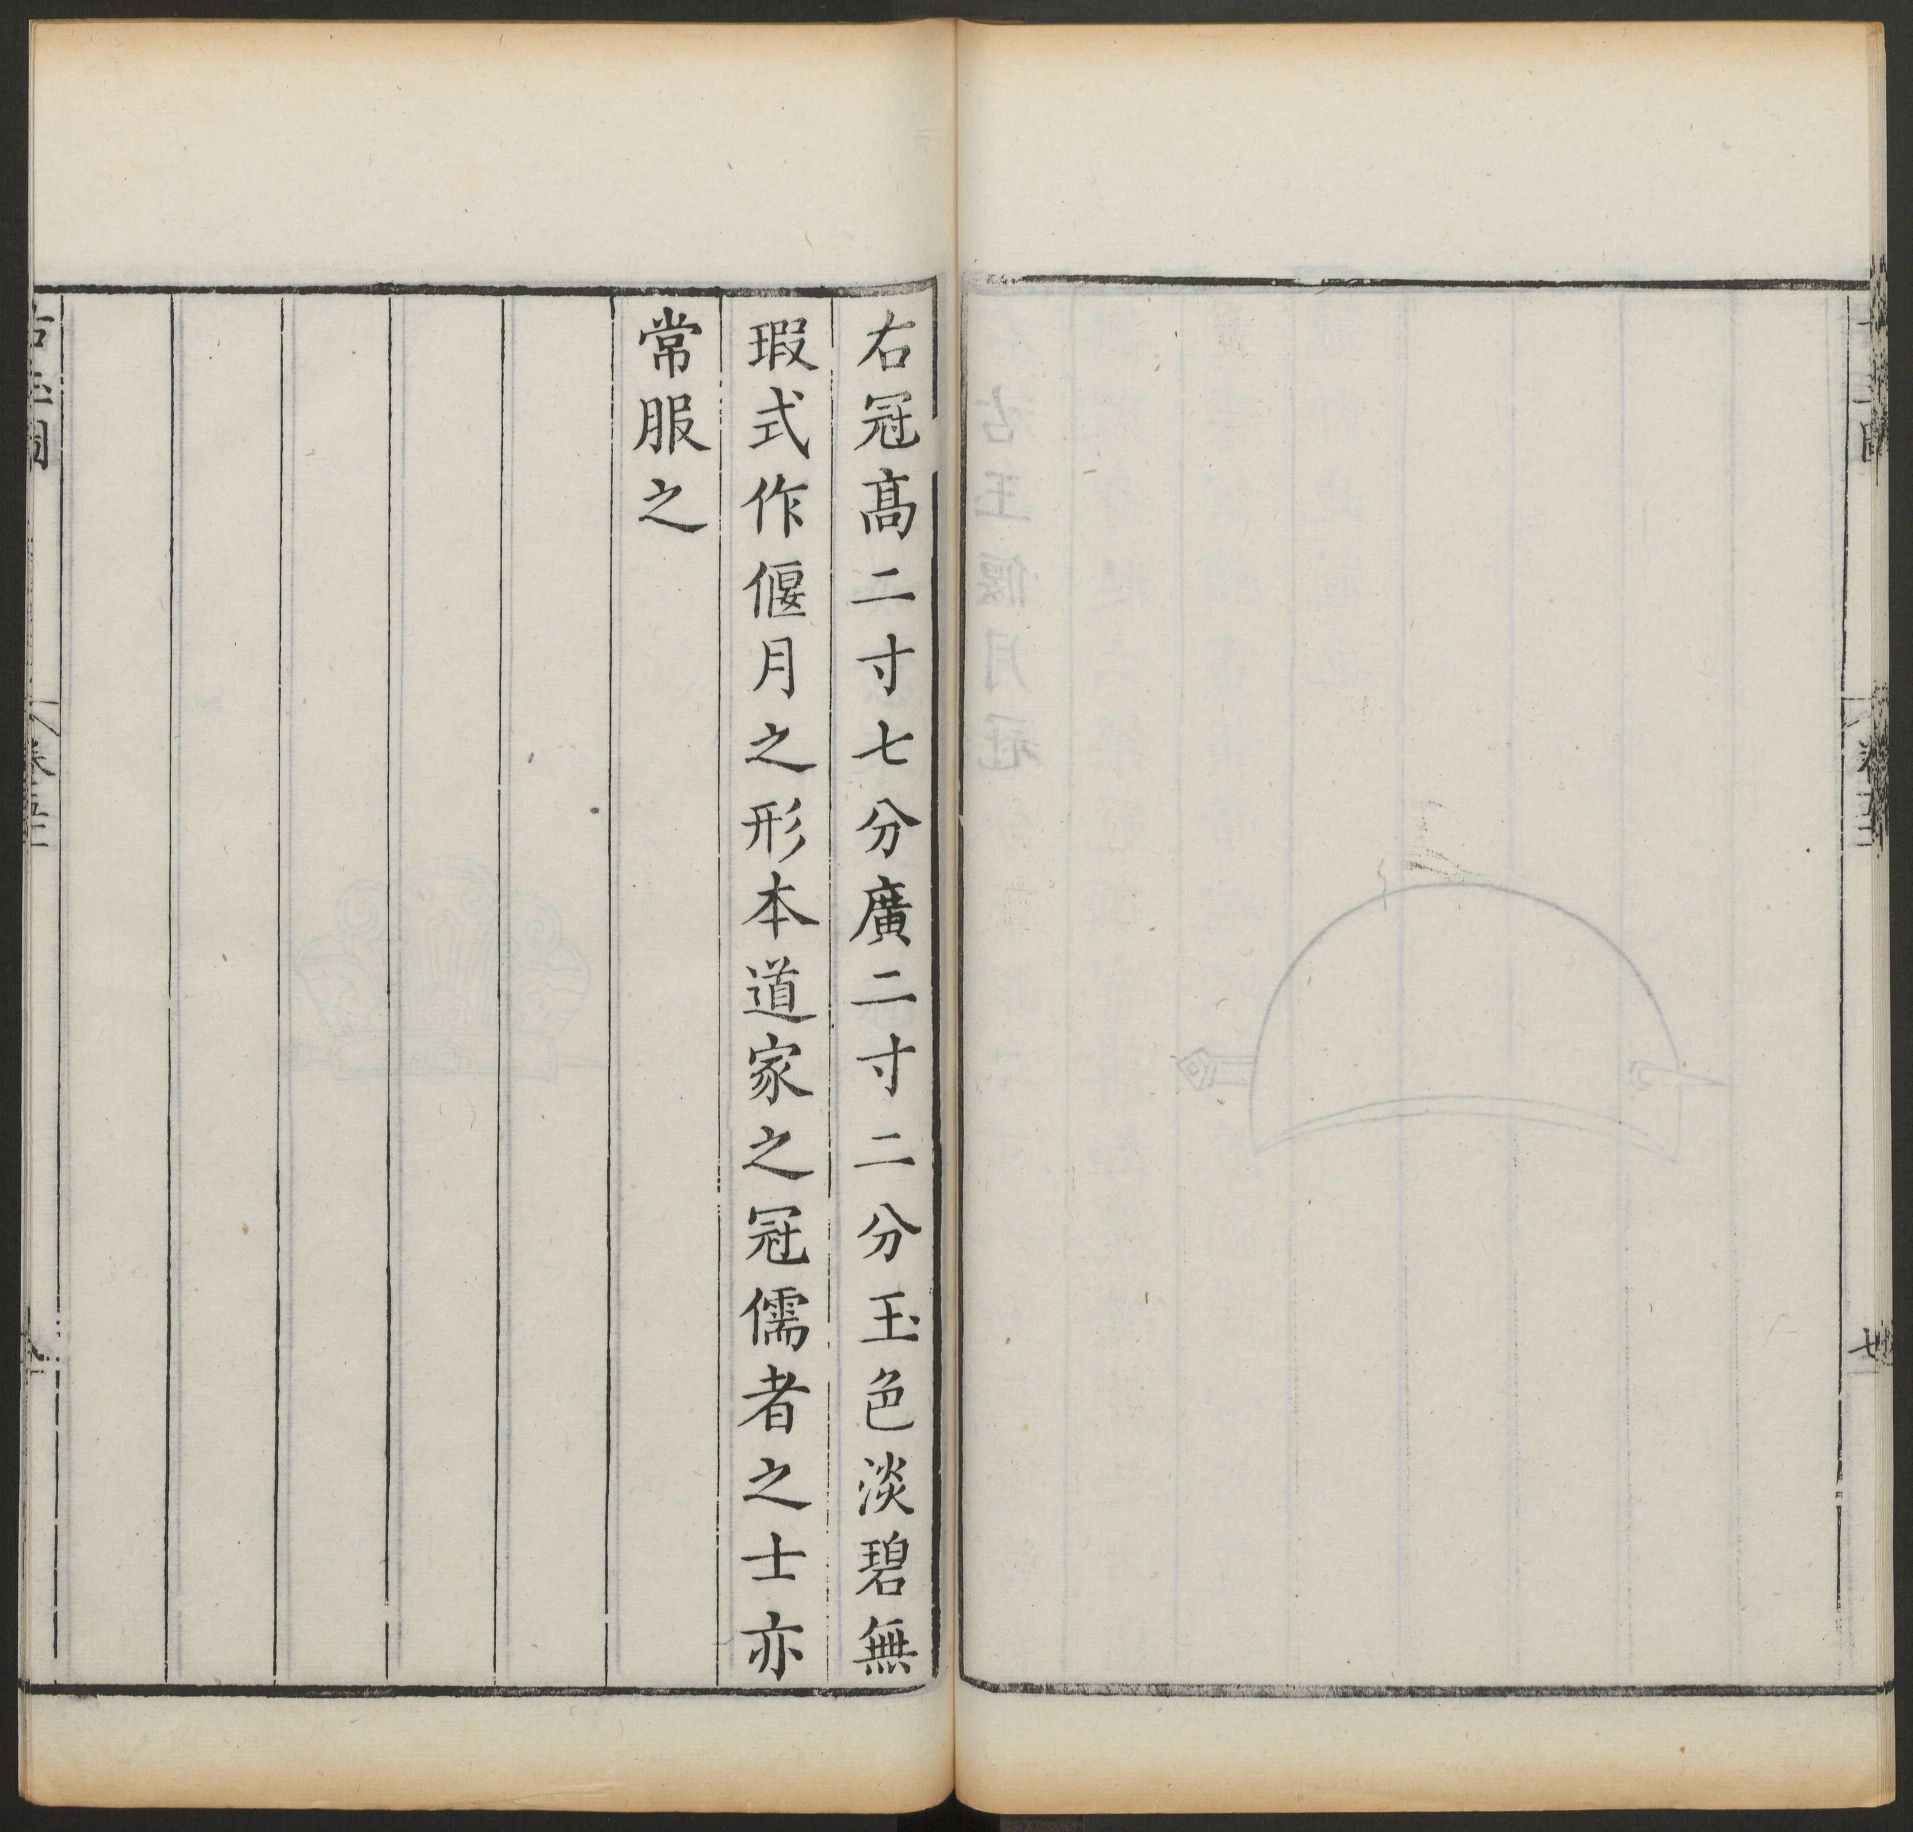 右冠髙二寸七分廣二寸二分玉色淡碧無
瑕式作偃月之形本道家之冠儒者之士亦
常服之
古玉圖
卷五
七